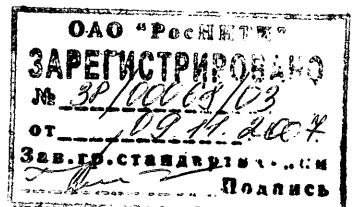 ОАО "РосНИТИ"
ЗАРЕГИСТРИРОВАНО
№ 38/00068/03
от 09.11.2007.
Зав.гр.стандартизации
Подпись